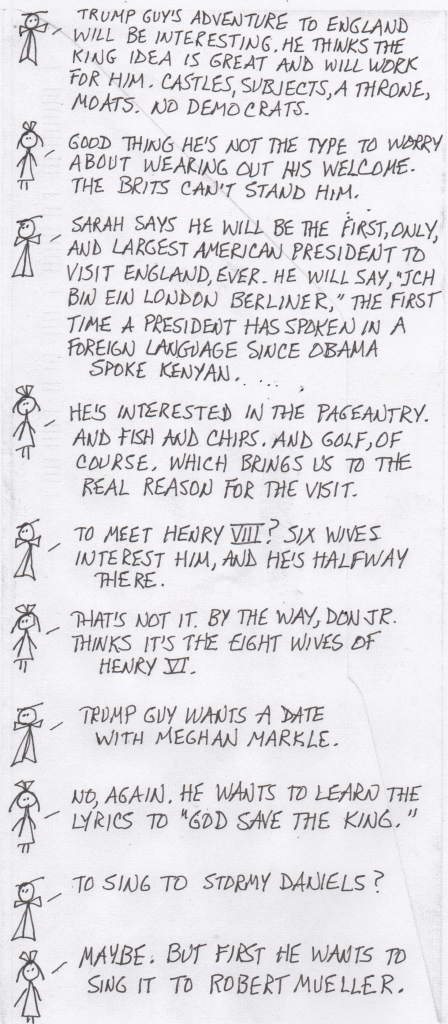 TRUMP GUY'S ADVENTURE TO ENGLAND
WILL BE INTERESTING. HE THINKS THE
KING IDEA IS GREAT AND WILL WORK
FOR HIM. CASTLES, SUBJECTS, A THRONE,
MOATS. NO DEMOCRATS.
GOOD THING HE'S NOT THE TYPE TO WORRY
ABOUT WEARING OUT HIS WELCOME.
THE BRITS CAN'T STAND HIM.
SARAH SAYS HE WILL BE THE FIRST, ONLY,
AND LARGEST AMERICAN PRESIDENT TO
VISIT ENGLAND, EVER. HE WILL SAY, "ICH
BIN EIN LONDON BERLINER," THE FIRST
TIME A PRESIDENT HAS SPOKEN IN A
FOREIGN LANGUAGE SINCE OBAMA
SPOKE KENYAN.
HE'S INTERESTED IN THE PAGEANTRY.
AND FISH AND CHIPS. AND GOLF, OF
COURSE. WHICH BRINGS US TO THE
REAL REASON FOR THE VISIT.
TO MEET HENRY VIII? SIX WIVES
INTEREST HIM, AND HE'S HALFWAY
THERE.
THAT'S NOT IT. BY THE WAY, DON JR.
THINKS IT'S THE EIGHT WIVES OF
HENRY VI.
TRUMP GUY WANTS A DATE
WITH MEGHAN MARKLE.
NO, AGAIN. HE WANTS TO LEARN THE
LYRICS TO "GOD SAVE THE KING."
TO SING TO STORMY DANIELS?
MAYBE. BUT FIRST HE WANTS TO
SING IT TO ROBERT MUELLER.